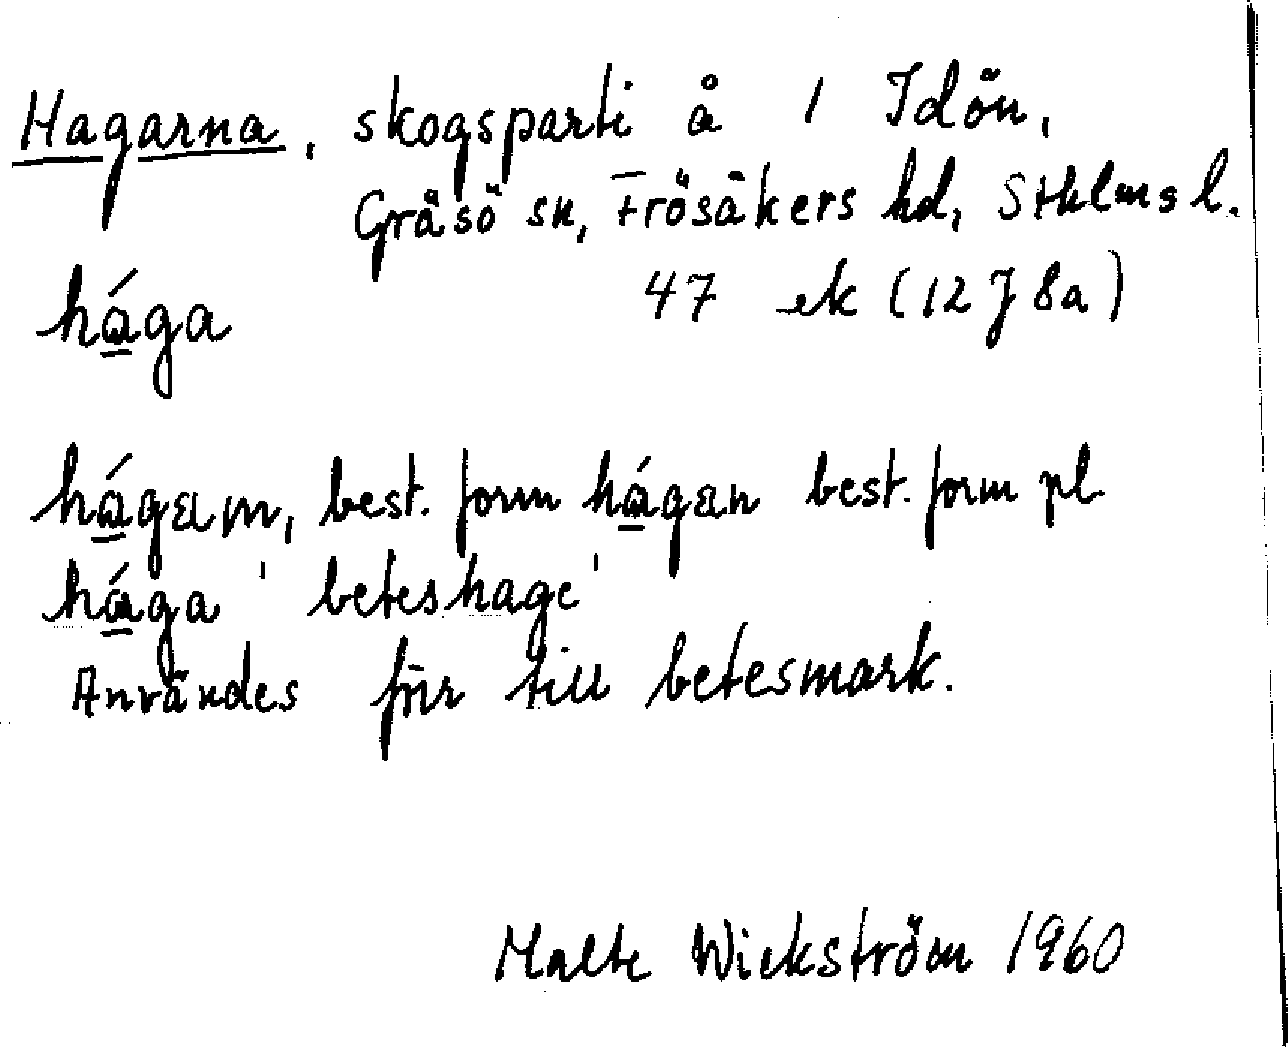 Hagarna, skogsparti å 1 Idön,
Gräsö sn, Frösåkers hd, Sthlms l.
há̱ga 47 ek (12 J 8a)
há̱gam, best. form há̱gan best. form pl
há̱ga 'beteshage'
Användes förr till betesmark.
Malte Wickström 1960